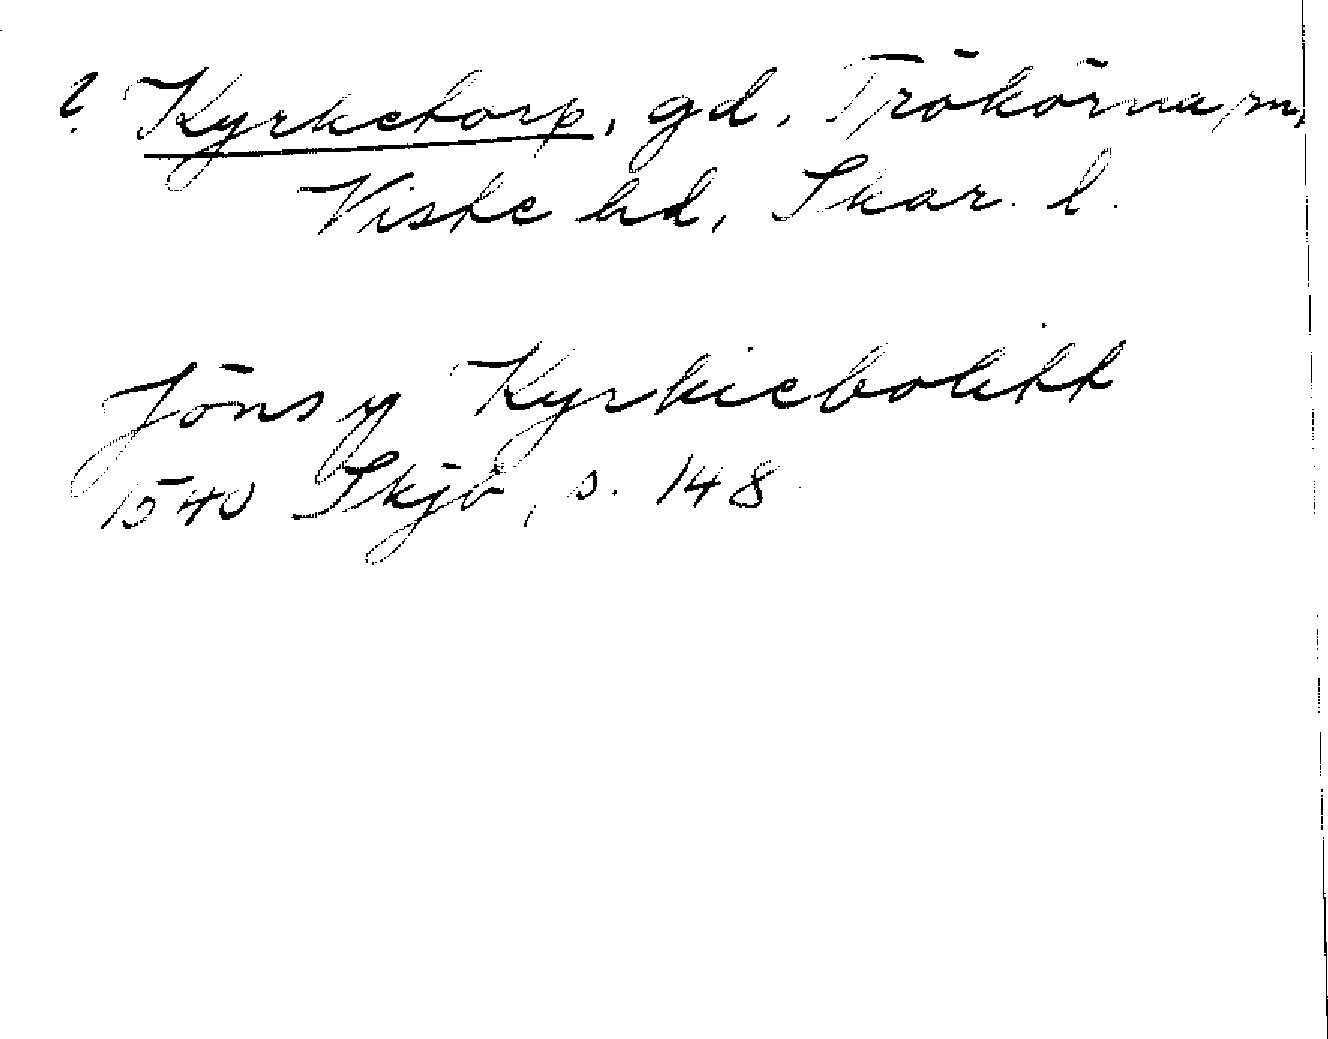 ? Kyrketorp, gd, Trökörna sn,
Viske hd, Skar. l.
Jöns y Kyrkiebolitt
1540 Skjb, s. 148